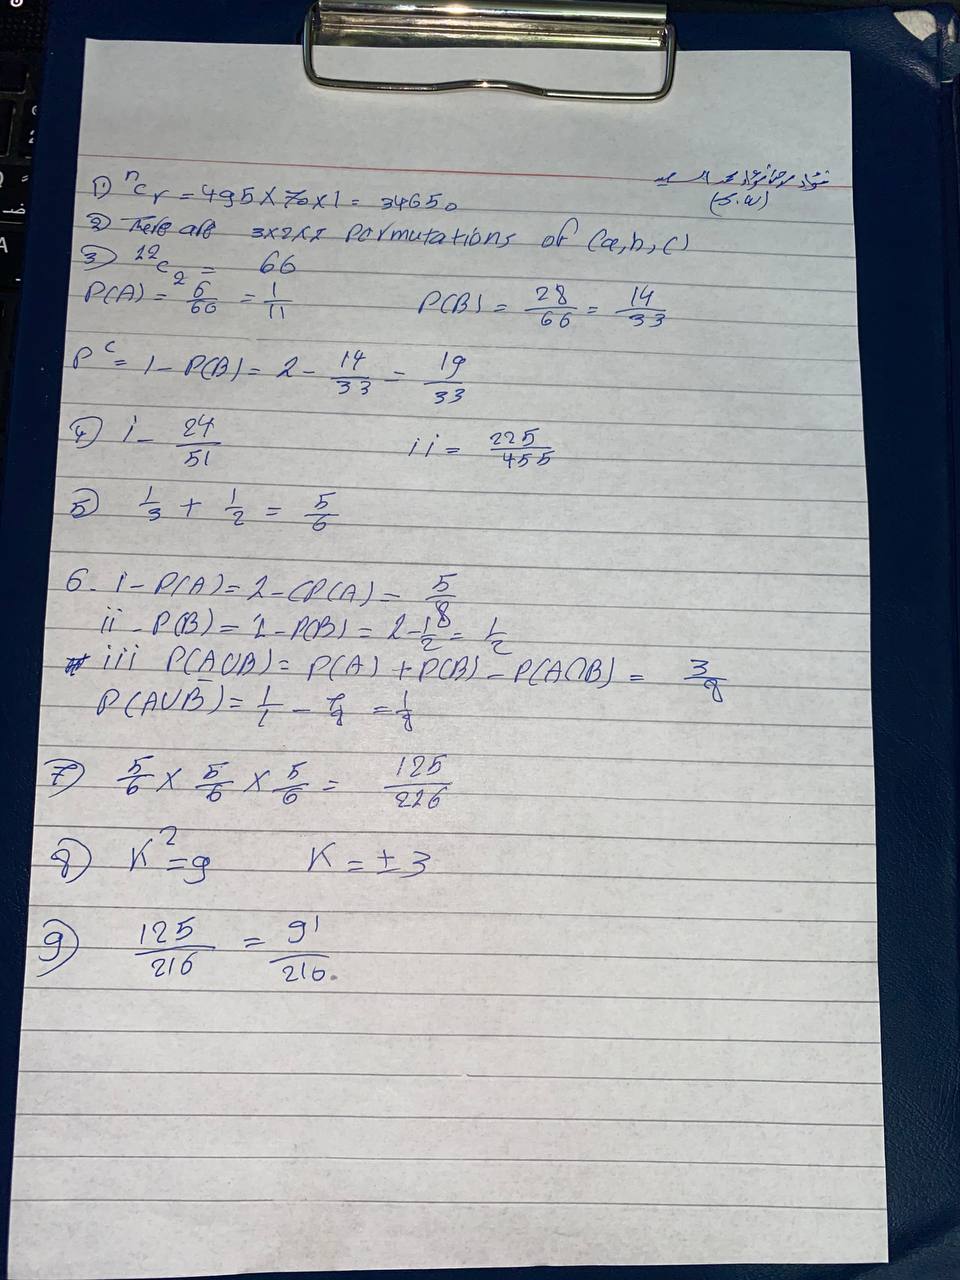 1) ⁿCᵣ = 495 × 70 × 1 = 34650
(5.w)
2) There are 3x2x1 permutations of (a, b, c)
3) ¹²C₂ = 66
P(A) = 6/66 = 1/11 P(B) = 28/66 = 14/33
Pᶜ = 1 - P(B) = 2 - 14/33 - 19/33
4) i - 24/51 ii = 225/455
5) 1/3 + 1/2 = 5/6
6 - i - P(A) = 2 - CP(A) = 5/8
ii - P(B) = 1 - P(B) = 2 - 1/2 = 1/2
iii P(A∪B) = P(A) + P(B) - P(A∩B) = 3/8
P(A∪B) = 1/1 - = 1/8
7) 5/6 × 5/6 × 5/6 = 125/226
8) K² = 9 K = ±3
9) 125/216 = 91/216.